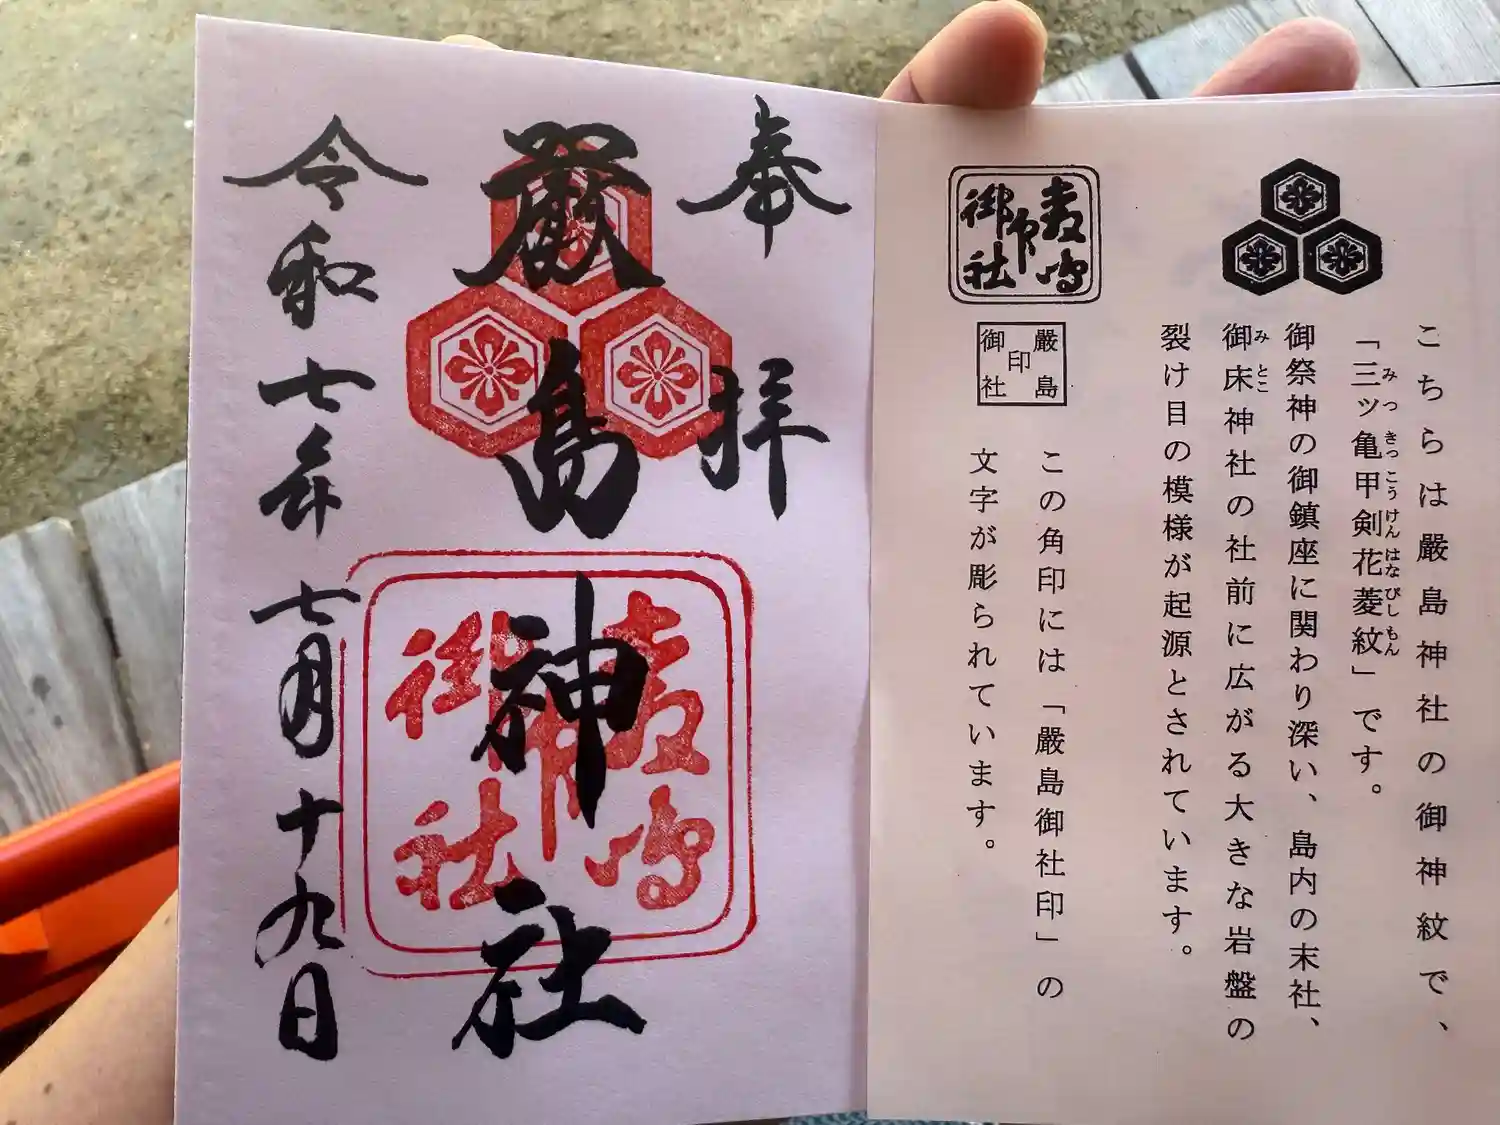 こちらは嚴島神社の御神紋で、
みつ きっこう けん はな びし もん
「三ッ亀甲剣花菱紋」です。
御祭神の御鎮座に関わり深い、島内の末社、
み とこ
御床神社の社前に広がる大きな岩盤の
裂け目の模様が起源とされています。
嚴島
印
御社
嚴島
印
御社
この角印には「嚴島御社印」の
文字が彫られています。
奉拝
嚴島神社
嚴島
印
御社
令和七年七月十九日